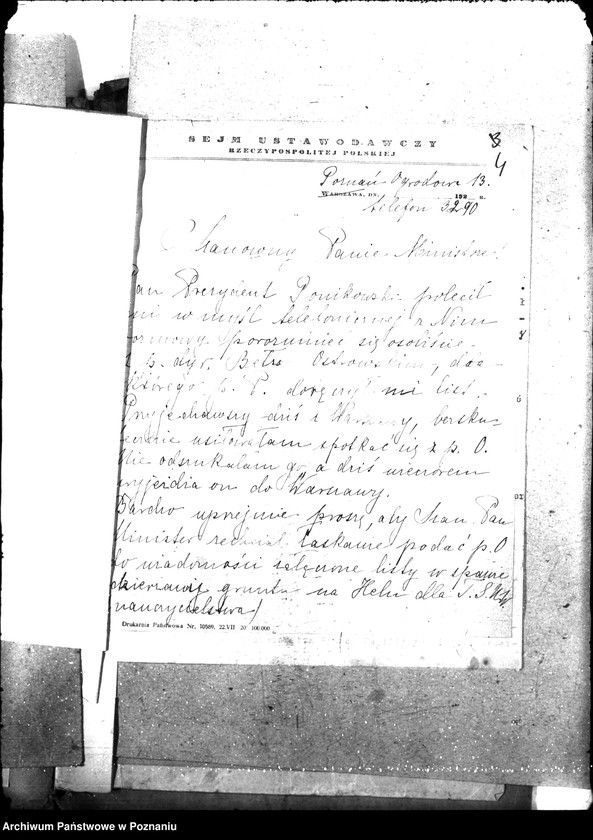 SEJM USTAWODAWCZY
RZECZYPOSPOLITEJ POLSKIEJ
4
Poznań Ogrodowa 13.
WARSZAWA, DN. 192 r.
telefon 3290
Szanowny Panie Ministrze!
Pan Prezydent Ponikowski polecił
mi w myśl telefonicznej z Nim
rozmowy porozumieć się osobiście
z p. dyr. Ostrowskim, dla
którego p. P. doręczył mi list.
Przyjechawszy dziś z Warszawy, bezsku-
tecznie usiłowałam spotkać się z p. O.
Nie odszukałam go, a dziś wieczorem
wyjeżdża on do Warszawy.
Bardzo uprzejmie proszę, aby Szan. Pan
Minister raczył łaskawie podać p. O
do wiadomości załączone listy w sprawie
dzierżawy gruntu na Helu dla
nauczycielstwa)
Drukarnia Państwowa Nr. 10509. 22.VII 20 100.000
Archiwum Państwowe w Poznaniu